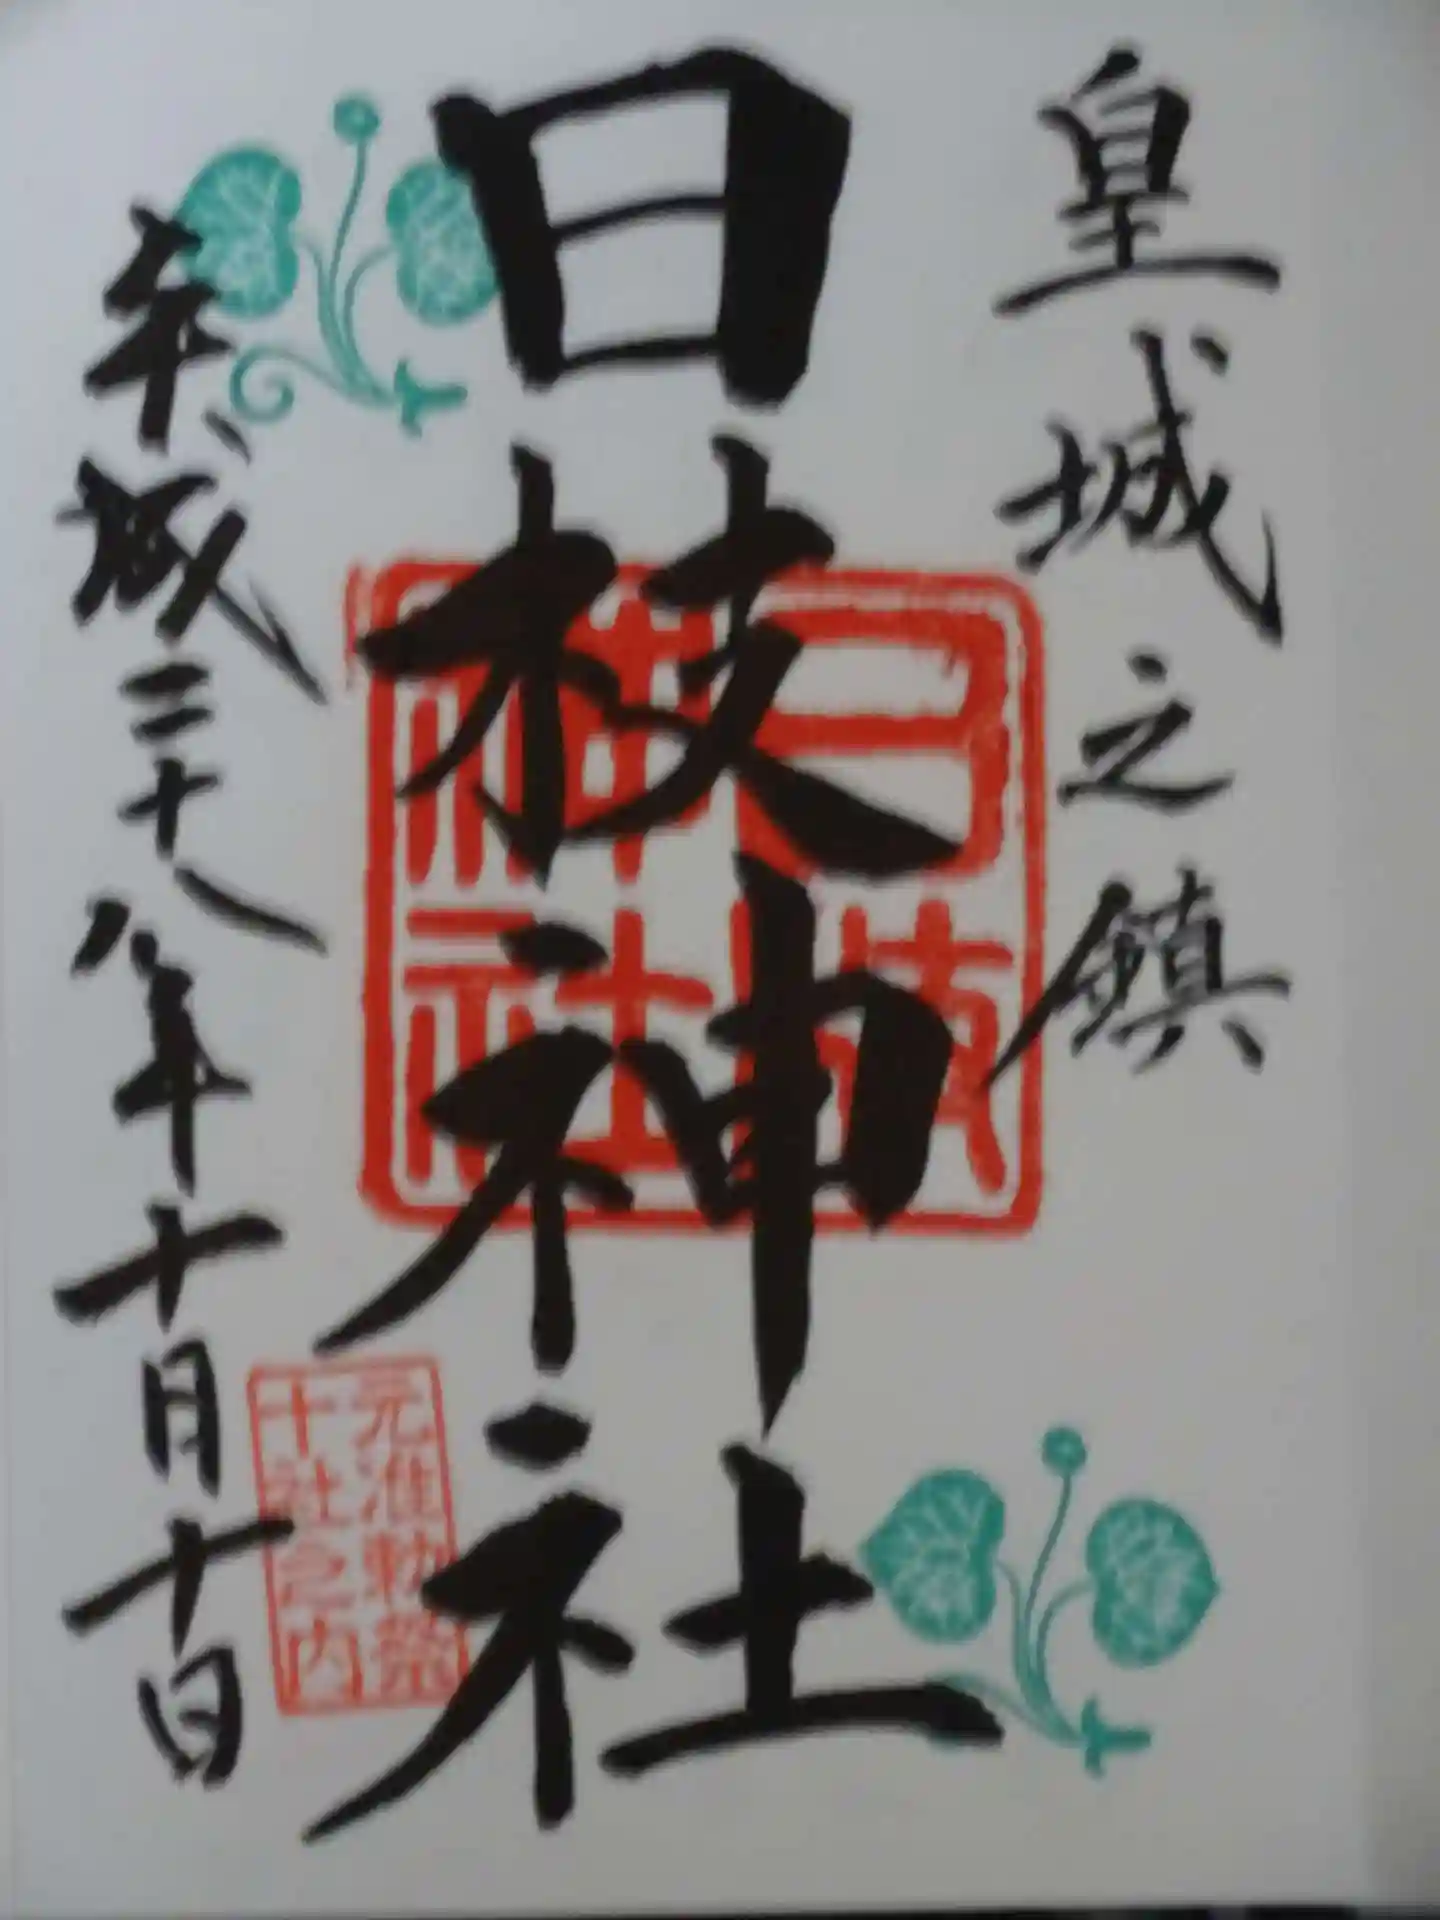 皇城之鎮
日枝神社
日枝
神社
元准勅祭
十社之内
平成二十八年十月十日